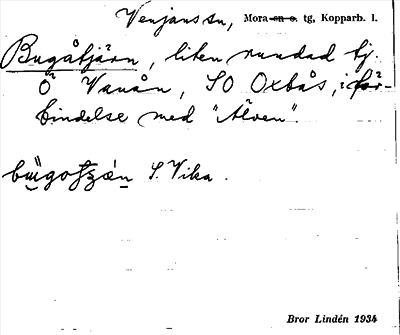 Venjans sn, Mora en o. tg, Kopparb. l.
Bugåtjärn, liten rundad tj.
Ö Vanån, SO Oxbås, i för-
bindelse med "Älven".
S. Vika.
Bror Lindén 1934